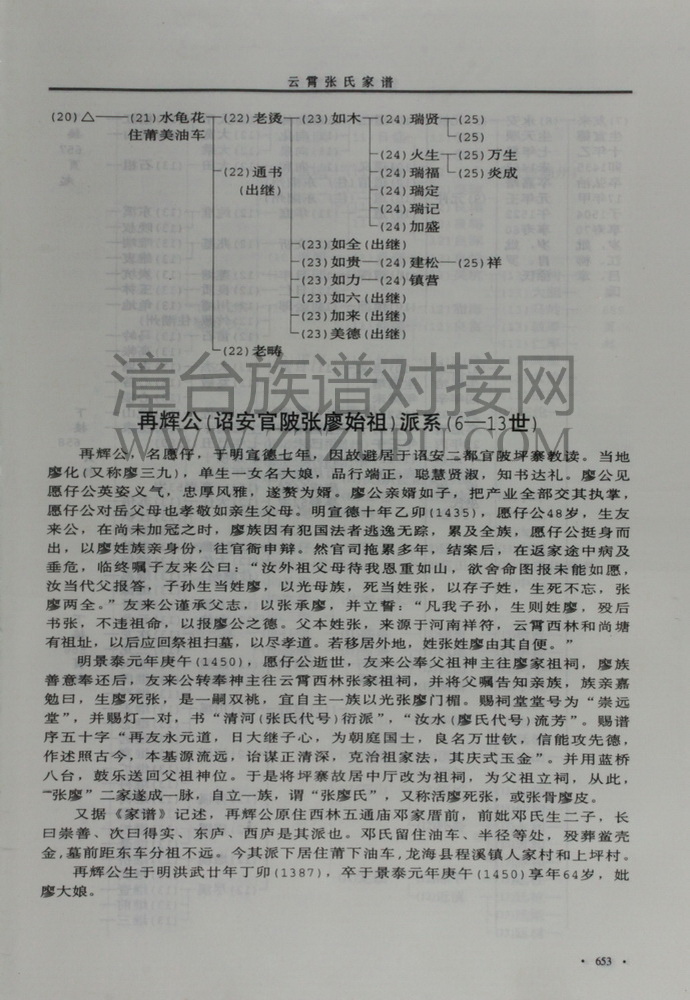 云霄张氏家谱
(20)△——(21)水龟花—(22)老烫—(23)如木—(24)瑞贤—(25)
住莆美油车 (25)
(24)火生—(25)万生
(22)通书 (24)瑞福—(25)炎成
(出继) (24)瑞定
(24)瑞记
(24)加盛
(23)如全(出继)
(23)如贵—(24)建松—(25)祥
(23)如力—(24)镇营
(23)如六(出继)
(23)加来(出继)
(23)美德(出继)
(22)老畴
漳台族谱对接网
WWW.ZTZUPU.COM
再辉公(诏安官陂张廖始祖)派系(6—13世)
再辉公，名愿仔，于明宣德七年，因故避居于诏安二都官陂坪寨教读。当地
廖化(又称廖三九)，单生一女名大娘，品行端正，聪慧贤淑，知书达礼。廖公见
愿仔公英姿义气，忠厚风雅，遂赘为婿。廖公亲婿如子，把产业全部交其执掌，
愿仔公对岳父母也孝敬如亲生父母。明宣德十年乙卯(1435)，愿仔公48岁，生友
来公，在尚未加冠之时，廖族因有犯国法者逃逸无踪，累及全族，愿仔公挺身而
出，以廖姓族亲身份，往官衙申辩。然官司拖累多年，结案后，在返家途中病及
垂危，临终嘱子友来公曰：“汝外祖父母待我恩重如山，欲舍命图报未能如愿，
汝当代父报答，子孙生当姓廖，以光母族，死当姓张，以存子姓，生死不忘，张
廖两全。”友来公谨承父志，以张承廖，并立誓：“凡我子孙，生则姓廖，殁后
书张，不违祖命，以报廖公之德。父本姓张，来源于河南祥符，云霄西林和尚塘
有祖址，以后应回祭祖扫墓，以尽孝道。若移居外地，姓张姓廖由其自便。”
明景泰元年庚午(1450)，愿仔公逝世，友来公奉父祖神主往廖家祖祠，廖族
善意奉还后，友来公转奉神主往云霄西林张家祖祠，并将父嘱告知亲族，族亲嘉
勉曰，生廖死张，是一嗣双祧，宜自主一族以光张廖门楣。赐祠堂堂号为“崇远
堂”，并赐灯一对，书“清河(张氏代号)衍派”，“汝水(廖氏代号)流芳”。赐谱
序五十字“再友永元道，日大继子心，为朝庭国士，良名万世钦，信能攻先德，
作述照古今，本基源流远，诒谋正清深，克治祖家法，其庆式玉金”。并用蓝桥
八台，鼓乐送回父祖神位。于是将坪寨故居中厅改为祖祠，为父祖立祠，从此，
“张廖”二家遂成一脉，自立一族，谓“张廖氏”，又称活廖死张，或张骨廖皮。
又据《家谱》记述，再辉公原住西林五通庙邓家厝前，前妣邓氏生二子，长
曰崇善、次曰得实、东庐、西庐是其派也。邓氏留住油车、半径等处，殁葬鲎壳
金,墓前距东车分祖不远。今其派下居住莆下油车,龙海县程溪镇人家村和上坪村。
再辉公生于明洪武廿年丁卯(1387)，卒于景泰元年庚午(1450)享年64岁，妣
廖大娘。
· 653 ·